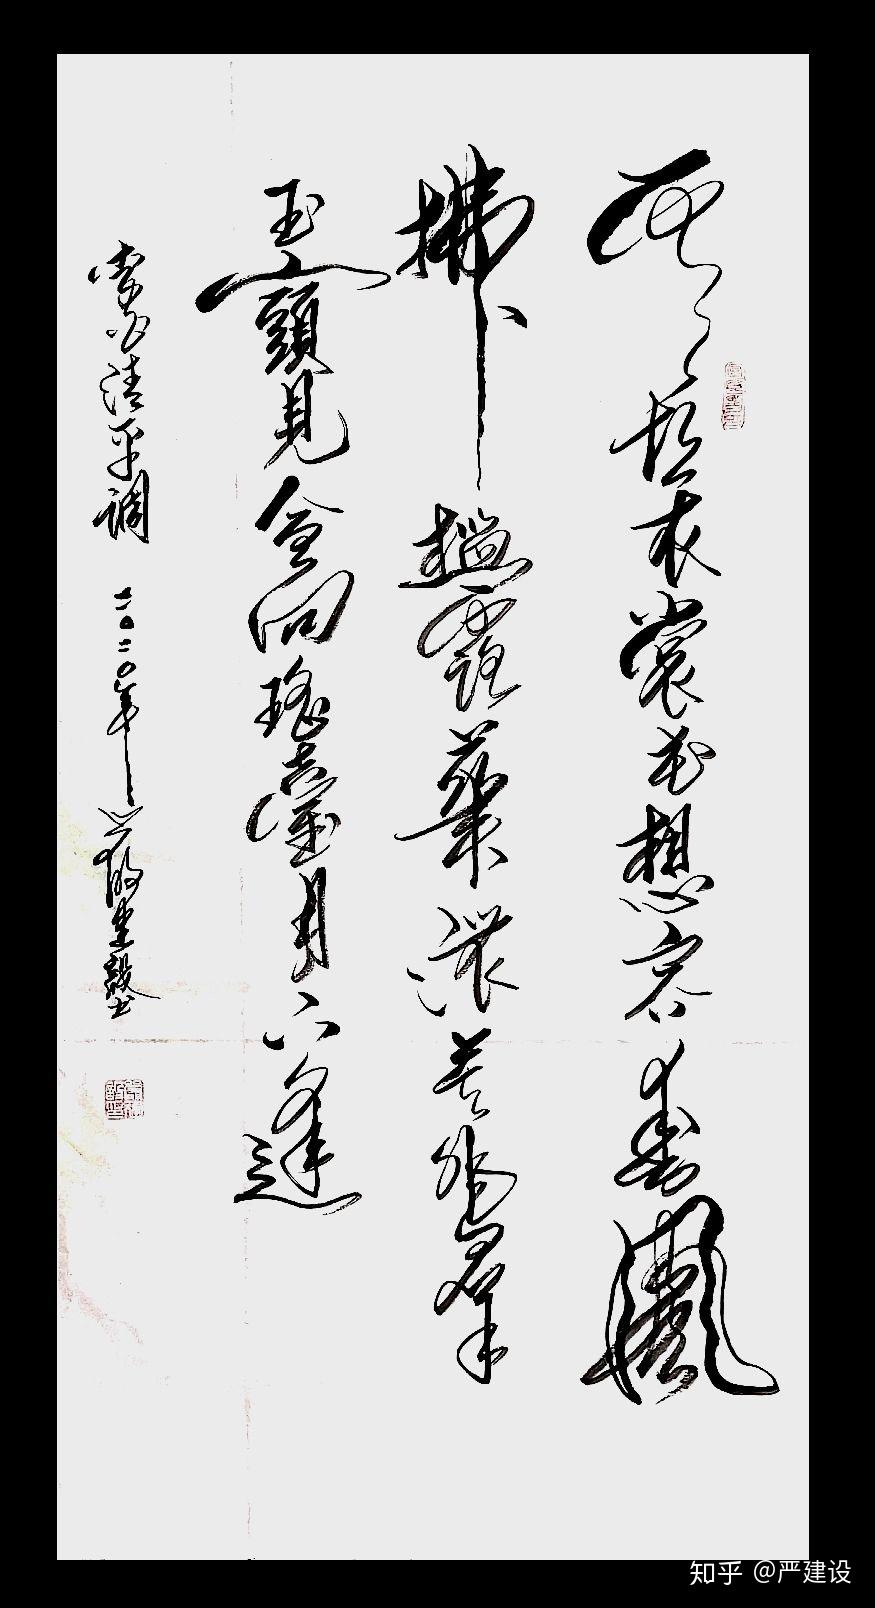 雲想衣裳花想容春風
拂檻露華濃若非群
玉山頭見會向瑤臺月下逢
李白清平調 二〇二〇年 毅書
知乎 @严建设